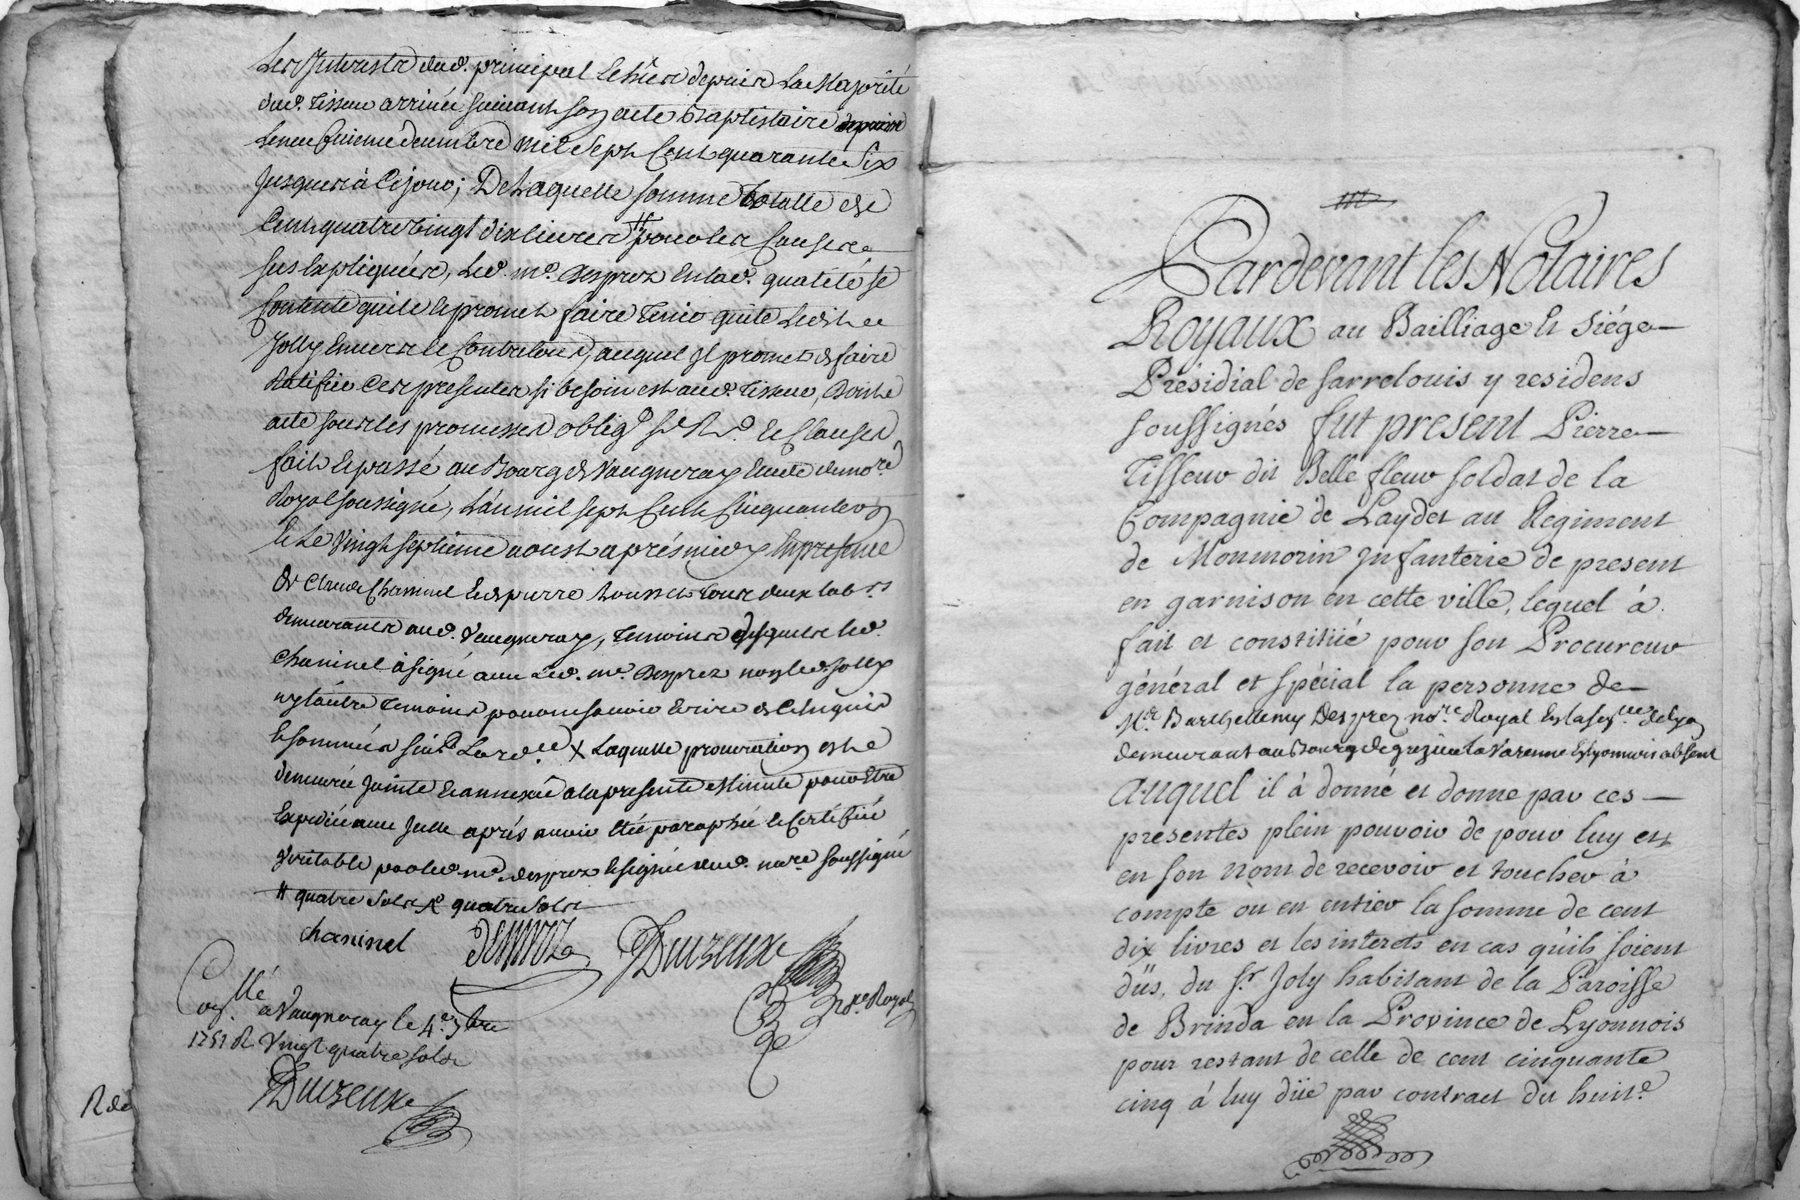 Les Interests dud. principal Echûs depuis La Majorité
dud. Tisseur arrivée suivant son acte Baptistaire depuis
Le neufvieme decembre mil sept Cent quarante Six
Jusques à Ce jour; De Laquelle somme totalle de
Cent quatre vingt dix livres # pour les Causes
sus Expliquées, Led. me. Desprez En lad. qualité se
Contente quitte Et promet faire tenir quitte Ledit
Jolly Envers et Contre tous, auquel Il promet de faire
Ratifier Ces presentes si besoin est aud. Tisseur, Dont
acte sous les promesses oblig. s. R. et Clauses
fait Et passé au Bourg de Vaugneray Etude du no.re
Royal soussigné, L'an mil sept Cent Cinquante un
Et Le vingt septieme aoust aprés midy En presence
de Claude Chaninel Et de pierre tous deux lab.rs
demeurants aud. Vaugneray, temoins desquels led.
Chaninel à signé avec Led. me. Desprez non led. Jolly
ny l'autre temoins pour ne savoir Ecrire de Ce Enquis
Et sommés X Laquelle procuration est
demeurée Jointe Et annexée a la presente Minute pour Etre
Expediée avec Icelle aprés avoir Eté paraphée Et Certifiée
Veritable par led. me. Desprez Et signée dud. no.re soussigné
# quatre sols X quatre sols
Chaninel Desprez Duizeux
n.re Royal
Con.llé
a Vaugneray le 4.e 7bre
1751 R. Vingt quatre sols
Duizeux
R de
Pardevant les Notaires
Royaux au Bailliage Et Siége
Présidial de Sarrelouis y residens
soussignés fut present Pierre
Tisseur dit Belle fleur soldat de la
Compagnie de Laydet au Regiment
de Monmorin Infanterie de present
en garnison en cette ville, lequel à
fait et constitüé pour son Procureur
général et spécial la personne de
Mr. Barthellemy Desprez no.re Royal En la sen.ée de Lyon
demeurant au Bourg de grezieu la Varenne En Lyonnois absent
auquel il à donné et donne par ces
presentes plein pouvoir de pour luy et
en son nom de recevoir et toucher à
compte ou en entier la somme de cent
dix livres et les interets en cas qu'ils soient
düs, du Sr. Joly habitant de la Paroisse
de Brinda en la Province de Lyonnois
pour restant de celle de cent cinquante
cinq à luy düe par contract du huit.e